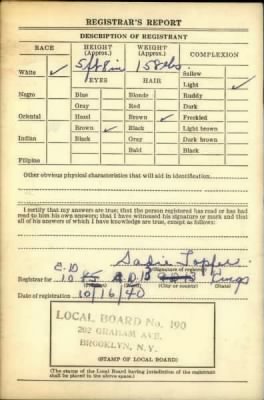 REGISTRAR'S REPORT
DESCRIPTION OF REGISTRANT
RACE HEIGHT (Approx.) WEIGHT (Approx.) COMPLEXION
White ✓ 5 ft 8 in 158 lbs. Sallow
EYES HAIR Light ✓
Negro Blue Blonde Ruddy
Gray Red Dark
Oriental Hazel Brown ✓ Freckled
Brown ✓ Black Light brown
Indian Black Gray Dark brown
Bald Black
Filipino
Other obvious physical characteristics that will aid in identification
I certify that my answers are true; that the person registered has read or has had
read to him his own answers; that I have witnessed his signature or mark and that
all of his answers of which I have knowledge are true, except as follows:
Sadie
E.D. (Signature of registrar)
Registrar for 10 A.D. 13 Kings
(Precinct) (Ward) (City or county) (State)
Date of registration 10/16/40
LOCAL BOARD No. 190
202 GRAHAM AVE.
BROOKLYN, N. Y.
(STAMP OF LOCAL BOARD)
(The stamp of the Local Board having jurisdiction of the registrant
shall be placed in the above space.)